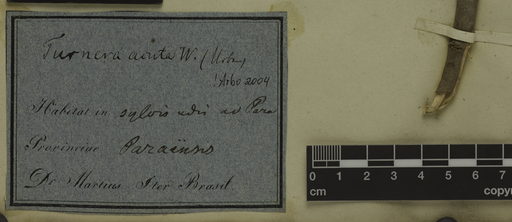 Turnera acuta W. (Urb.)
! Arbo 2004
Habitat in sylvis udis ad Para
Provinciae Paraënsis
Dr. Martius Iter Brasil
0 1 2 3 4 5 6 7
cm copy